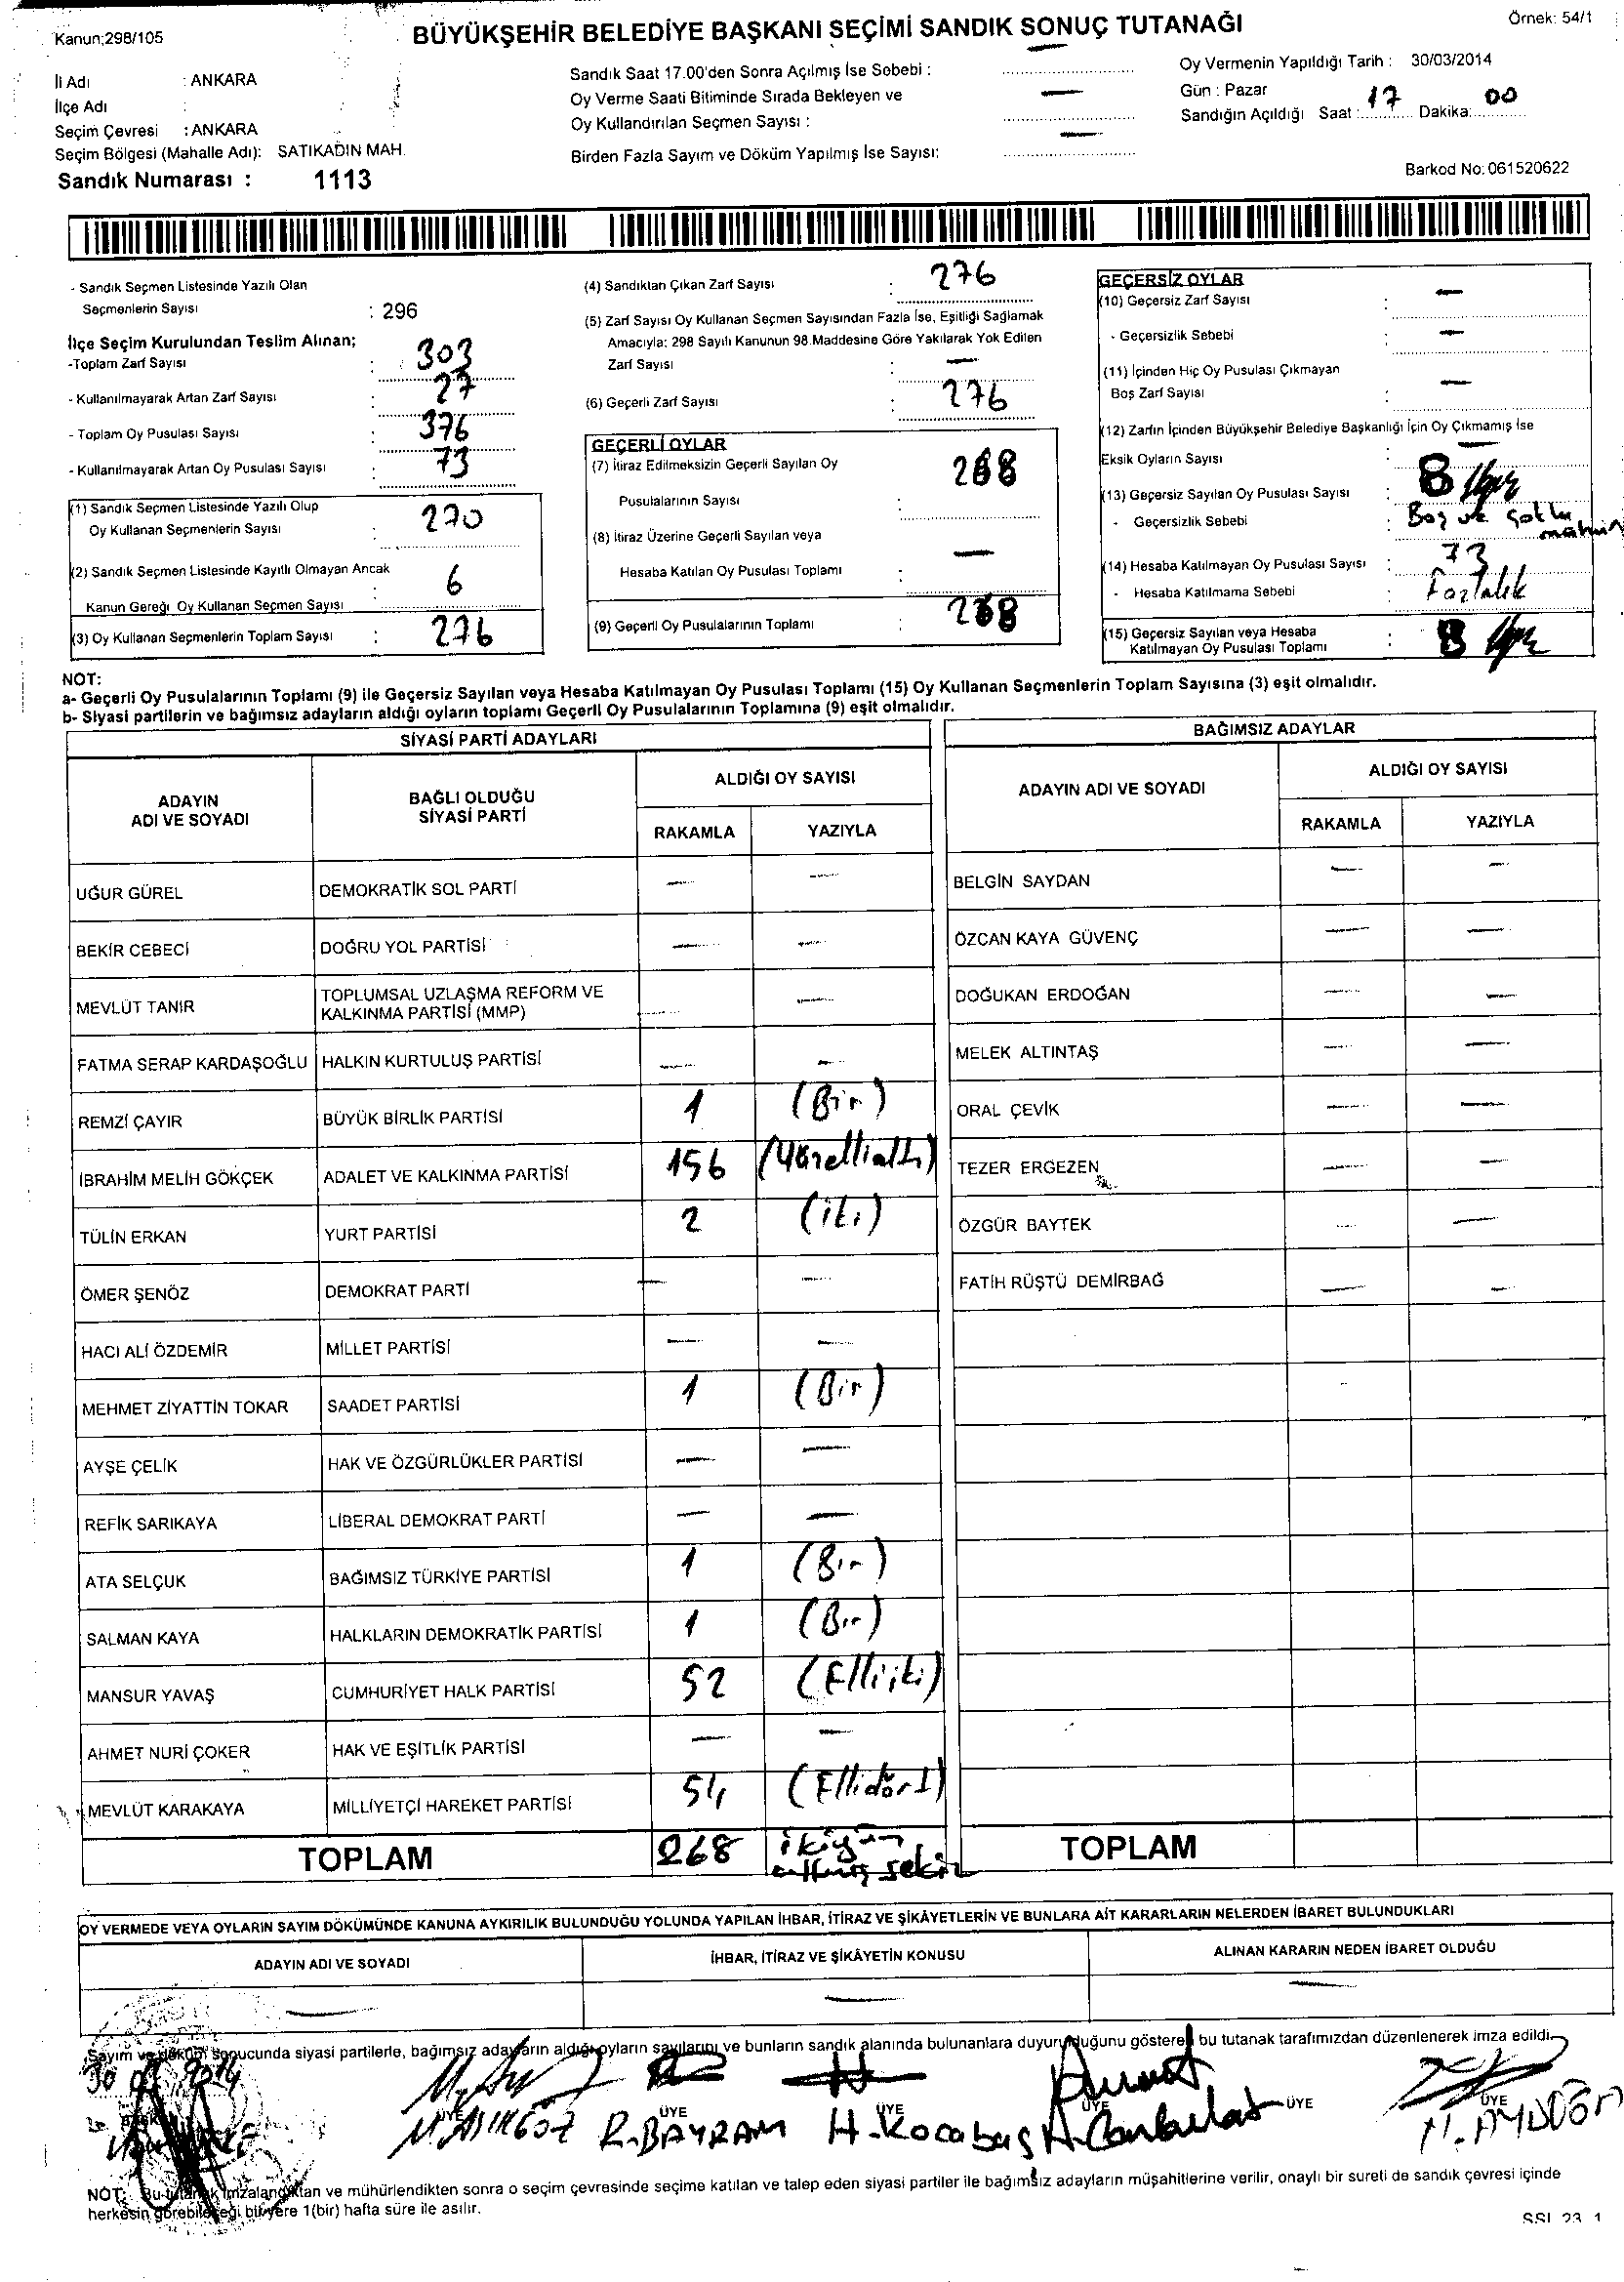 Örnek: 54/1
Kanun:298/105
BÜYÜKŞEHİR BELEDİYE BAŞKANI SEÇİMİ SANDIK SONUÇ TUTANAĞI
İli Adı : ANKARA
İlçe Adı :
Seçim Çevresi : ANKARA
Seçim Bölgesi (Mahalle Adı): SATIKADIN MAH.
Sandık Numarası : 1113
Sandık Saat 17.00'den Sonra Açılmış İse Sebebi : —
Oy Verme Saati Bitiminde Sırada Bekleyen ve
Oy Kullandırılan Seçmen Sayısı : —
Birden Fazla Sayım ve Döküm Yapılmış İse Sayısı: —
Oy Vermenin Yapıldığı Tarih : 30/03/2014
Gün : Pazar
Sandığın Açıldığı Saat : 17 Dakika: 00
Barkod No: 061520622
- Sandık Seçmen Listesinde Yazılı Olan
Seçmenlerin Sayısı : 296
İlçe Seçim Kurulundan Teslim Alınan;
-Toplam Zarf Sayısı : 303
- Kullanılmayarak Artan Zarf Sayısı : 27
- Toplam Oy Pusulası Sayısı : 376
- Kullanılmayarak Artan Oy Pusulası Sayısı : 73
(1) Sandık Seçmen Listesinde Yazılı Olup
Oy Kullanan Seçmenlerin Sayısı : 270
(2) Sandık Seçmen Listesinde Kayıtlı Olmayan Ancak
Kanun Gereği Oy Kullanan Seçmen Sayısı : 6
(3) Oy Kullanan Seçmenlerin Toplam Sayısı : 276
(4) Sandıktan Çıkan Zarf Sayısı : 276
(5) Zarf Sayısı Oy Kullanan Seçmen Sayısından Fazla İse, Eşitliği Sağlamak
Amacıyla: 298 Sayılı Kanunun 98.Maddesine Göre Yakılarak Yok Edilen
Zarf Sayısı : —
(6) Geçerli Zarf Sayısı : 276
GEÇERLİ OYLAR
(7) İtiraz Edilmeksizin Geçerli Sayılan Oy
Pusulalarının Sayısı : 268
(8) İtiraz Üzerine Geçerli Sayılan veya
Hesaba Katılan Oy Pusulası Toplamı : —
(9) Geçerli Oy Pusulalarının Toplamı : 268
GEÇERSİZ OYLAR
(10) Geçersiz Zarf Sayısı : —
- Geçersizlik Sebebi : —
(11) İçinden Hiç Oy Pusulası Çıkmayan
Boş Zarf Sayısı : —
(12) Zarfın İçinden Büyükşehir Belediye Başkanlığı İçin Oy Çıkmamış İse
Eksik Oyların Sayısı : —
(13) Geçersiz Sayılan Oy Pusulası Sayısı : 8
- Geçersizlik Sebebi : Boş ve çoklu
(14) Hesaba Katılmayan Oy Pusulası Sayısı : 73
- Hesaba Katılmama Sebebi : Fazlalık
(15) Geçersiz Sayılan veya Hesaba
Katılmayan Oy Pusulası Toplamı : 8
NOT:
a- Geçerli Oy Pusulalarının Toplamı (9) ile Geçersiz Sayılan veya Hesaba Katılmayan Oy Pusulası Toplamı (15) Oy Kullanan Seçmenlerin Toplam Sayısına (3) eşit olmalıdır.
b- Siyasi partilerin ve bağımsız adayların aldığı oyların toplamı Geçerli Oy Pusulalarının Toplamına (9) eşit olmalıdır.
SİYASİ PARTİ ADAYLARI
ADAYIN ADI VE SOYADI BAĞLI OLDUĞU SİYASİ PARTİ ALDIĞI OY SAYISI
RAKAMLA YAZIYLA
UĞUR GÜREL DEMOKRATİK SOL PARTİ — —
BEKİR CEBECİ DOĞRU YOL PARTİSİ — —
MEVLÜT TANIR TOPLUMSAL UZLAŞMA REFORM VE KALKINMA PARTİSİ (MMP) — —
FATMA SERAP KARDAŞOĞLU HALKIN KURTULUŞ PARTİSİ — —
REMZİ ÇAYIR BÜYÜK BİRLİK PARTİSİ 1 (Bir)
İBRAHİM MELİH GÖKÇEK ADALET VE KALKINMA PARTİSİ 156 (Yüzellialtı)
TÜLİN ERKAN YURT PARTİSİ 2 (iki)
ÖMER ŞENÖZ DEMOKRAT PARTİ — —
HACI ALİ ÖZDEMİR MİLLET PARTİSİ — —
MEHMET ZİYATTİN TOKAR SAADET PARTİSİ 1 (Bir)
AYŞE ÇELİK HAK VE ÖZGÜRLÜKLER PARTİSİ — —
REFİK SARIKAYA LİBERAL DEMOKRAT PARTİ — —
ATA SELÇUK BAĞIMSIZ TÜRKİYE PARTİSİ 1 (Bir)
SALMAN KAYA HALKLARIN DEMOKRATİK PARTİSİ 1 (Bir)
MANSUR YAVAŞ CUMHURİYET HALK PARTİSİ 52 (Elliiki)
AHMET NURİ ÇOKER HAK VE EŞİTLİK PARTİSİ — —
MEVLÜT KARAKAYA MİLLİYETÇİ HAREKET PARTİSİ 54 (Ellidört)
TOPLAM 268 ikiyüz
altmış sekiz
BAĞIMSIZ ADAYLAR
ADAYIN ADI VE SOYADI ALDIĞI OY SAYISI
RAKAMLA YAZIYLA
BELGİN SAYDAN — —
ÖZCAN KAYA GÜVENÇ — —
DOĞUKAN ERDOĞAN — —
MELEK ALTINTAŞ — —
ORAL ÇEVİK — —
TEZER ERGEZEN — —
ÖZGÜR BAYTEK — —
FATİH RÜŞTÜ DEMİRBAĞ — —
TOPLAM
OY VERMEDE VEYA OYLARIN SAYIM DÖKÜMÜNDE KANUNA AYKIRILIK BULUNDUĞU YOLUNDA YAPILAN İHBAR, İTİRAZ VE ŞİKÂYETLERİN VE BUNLARA AİT KARARLARIN NELERDEN İBARET BULUNDUKLARI
ADAYIN ADI VE SOYADI İHBAR, İTİRAZ VE ŞİKÂYETİN KONUSU ALINAN KARARIN NEDEN İBARET OLDUĞU
— — —
Sayım ve döküm sonucunda siyasi partilerle, bağımsız adayların aldığı oyların sayılarını ve bunların sandık alanında bulunanlara duyurulduğunu gösteren bu tutanak tarafımızdan düzenlenerek imza edildi.
ÜYE ÜYE ÜYE ÜYE ÜYE ÜYE
R.BAYRAM H.Kocabaş A.Canbulat
NOT: Bu tutanak imzalandıktan ve mühürlendikten sonra o seçim çevresinde seçime katılan ve talep eden siyasi partiler ile bağımsız adayların müşahitlerine verilir, onaylı bir sureti de sandık çevresi içinde
herkesin görebileceği bir yere 1(bir) hafta süre ile asılır.